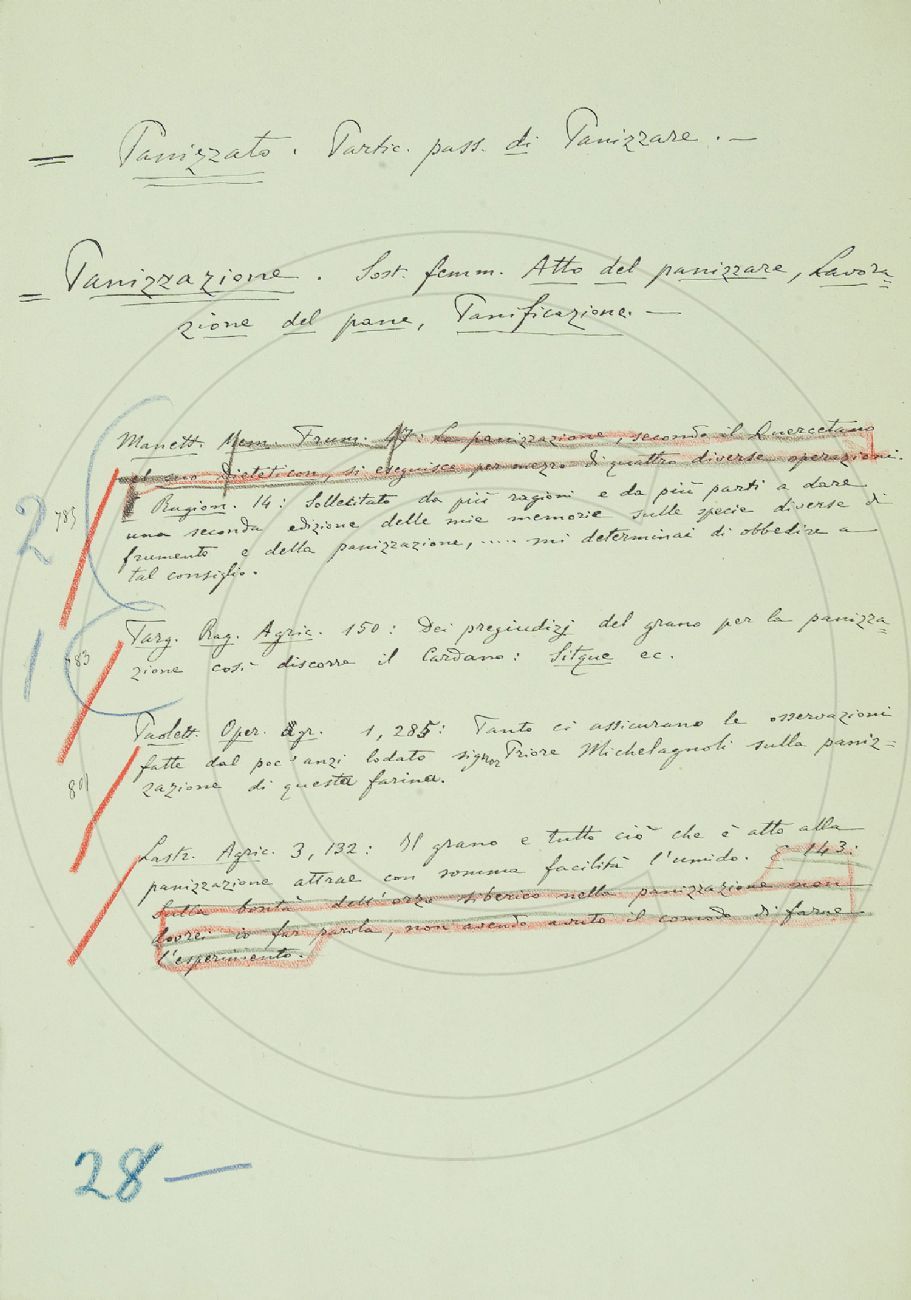 = Panizzato. Partic. pass. di Panizzare. —
= Panizzazione. Sost. femm. Atto del panizzare, Lavora=
zione del pane, Panificazione. —
Manett. Mem. Frum. 47: La panizzazione, secondo il Quercetano
nel suo Dieteticon, si eseguisce per mezzo di quattro diverse operazioni.
E Ragion. 14: Sollecitato da più ragioni e da più parti a dare
una seconda edizione delle mie memorie sulle specie diverse di
frumento e della panizzazione, ..... mi determinai di obbedire a
tal consiglio.
2
785
Targ. Rag. Agric. 150: Dei pregiudizj del grano per la panizza=
zione così discorre il Cardano: Sitque ec.
1
783
Paolett. Oper. Agr. 1, 285: Tanto ci assicurano le osservazioni
fatte dal poc'anzi lodato signor Priore Michelagnoli sulla paniz=
zazione di questa farina.
801
Lastr. Agric. 3, 132: Il grano e tutto ciò che è atto alla
panizzazione attrae con somma facilità l'umido. E 143:
Sulla bontà dell'orzo siberico nella panizzazione non
dovrei io far parola, non avendo avuto il comodo di farne
l'esperimento.
28 —